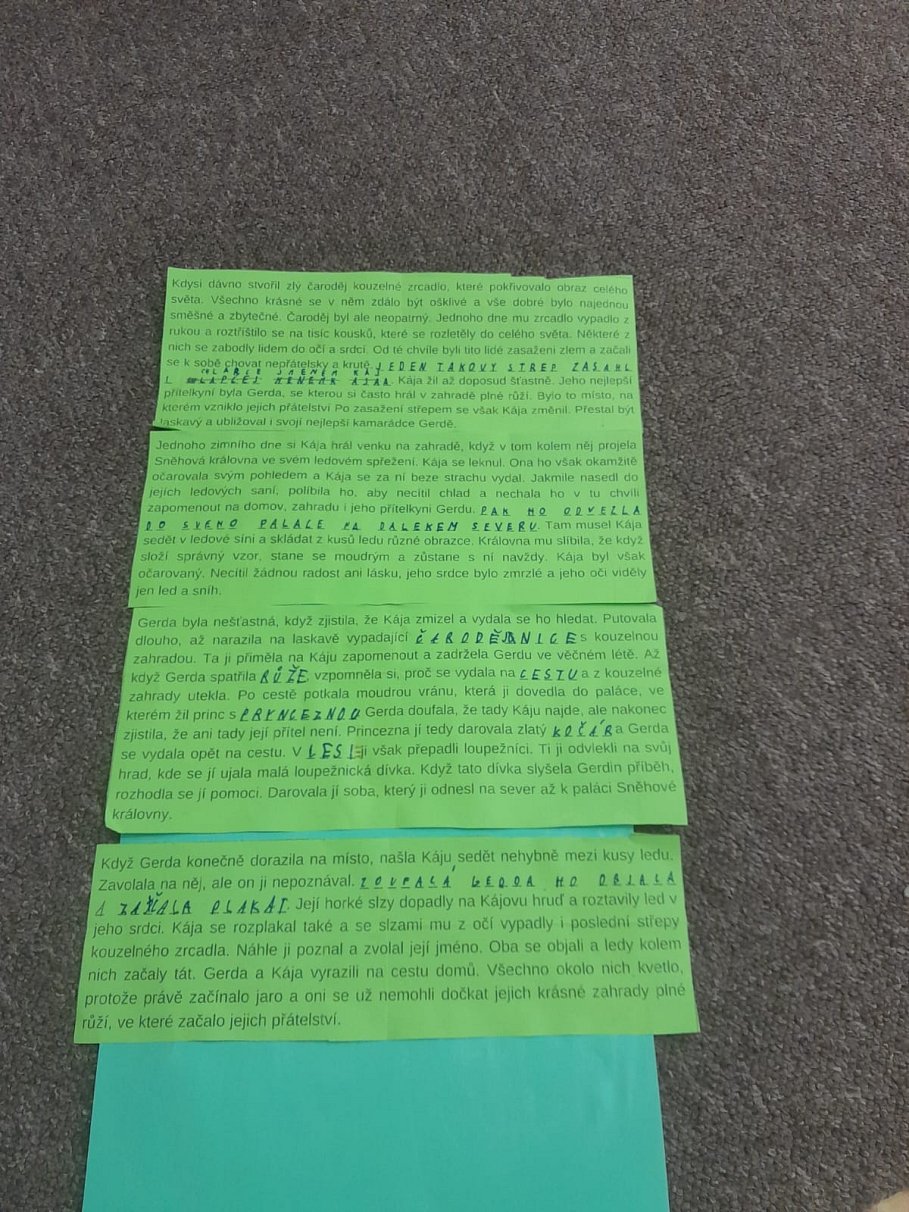 Kdysi dávno stvořil zlý čaroděj kouzelné zrcadlo, které pokřivovalo obraz celého
světa. Všechno krásné se v něm zdálo být ošklivé a vše dobré bylo najednou
směšné a zbytečné. Čaroděj byl ale neopatrný. Jednoho dne mu zrcadlo vypadlo z
rukou a roztříštilo se na tisíc kousků, které se rozletěly do celého světa. Některé z
nich se zabodly lidem do očí a srdcí. Od té chvíle byli tito lidé zasaženi zlem a začali
se k sobě chovat nepřátelsky a krutě. JEDEN TAKOVY STREP ZASAHL
JMÉNEM KÁJ
Kája žil až doposud šťastně. Jeho nejlepší
přítelkyní byla Gerda, se kterou si často hrál v zahradě plné růží. Bylo to místo, na
kterém vzniklo jejich přátelství Po zasažení střepem se však Kája změnil. Přestal být
laskavý a ubližoval i svojí nejlepší kamarádce Gerdě.
Jednoho zimního dne si Kája hrál venku na zahradě, když v tom kolem něj projela
Sněhová královna ve svém ledovém spřežení. Kája se leknul. Ona ho však okamžitě
očarovala svým pohledem a Kája se za ní beze strachu vydal. Jakmile nasedl do
jejích ledových saní, políbila ho, aby necítil chlad a nechala ho v tu chvíli
zapomenout na domov, zahradu i jeho přítelkyni Gerdu. PAK HO ODVEZLA
DO SVEHO PALACE NA DALEKEM SEVERU. Tam musel Kája
sedět v ledové síni a skládat z kusů ledu různé obrazce. Královna mu slíbila, že když
složí správný vzor, stane se moudrým a zůstane s ní navždy. Kája byl však
očarovaný. Necítil žádnou radost ani lásku, jeho srdce bylo zmrzlé a jeho oči viděly
jen led a sníh.
Gerda byla nešťastná, když zjistila, že Kája zmizel a vydala se ho hledat. Putovala
dlouho, až narazila na laskavě vypadající ČARODĚJNICE s kouzelnou
zahradou. Ta ji přiměla na Káju zapomenout a zadržela Gerdu ve věčném létě. Až
když Gerda spatřila RŮŽE, vzpomněla si, proč se vydala na CESTU a z kouzelné
zahrady utekla. Po cestě potkala moudrou vránu, která ji dovedla do paláce, ve
kterém žil princ s PRYNCEZNOU Gerda doufala, že tady Káju najde, ale nakonec
zjistila, že ani tady její přítel není. Princezna jí tedy darovala zlatý KOČÁR a Gerda
se vydala opět na cestu. V LESE ji však přepadli loupežníci. Ti ji odvlekli na svůj
hrad, kde se jí ujala malá loupežnická dívka. Když tato dívka slyšela Gerdin příběh,
rozhodla se jí pomoci. Darovala jí soba, který ji odnesl na sever až k paláci Sněhové
královny.
Když Gerda konečně dorazila na místo, našla Káju sedět nehybně mezi kusy ledu.
Zavolala na něj, ale on ji nepoznával. ZOUFALÁ GERDA HO OBJALA
A ZAČALA PLAKAT. Její horké slzy dopadly na Kájovu hruď a roztavily led v
jeho srdci. Kája se rozplakal také a se slzami mu z očí vypadly i poslední střepy
kouzelného zrcadla. Náhle ji poznal a zvolal její jméno. Oba se objali a ledy kolem
nich začaly tát. Gerda a Kája vyrazili na cestu domů. Všechno okolo nich kvetlo,
protože právě začínalo jaro a oni se už nemohli dočkat jejich krásné zahrady plné
růží, ve které začalo jejich přátelství.